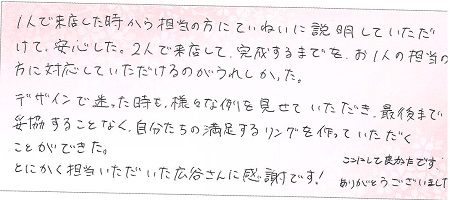 1人で来店した時から担当の方にていねいに説明していただ
けて、安心した。2人で来店して、完成するまでを、お1人の担当の
方に対応していただけるのがうれしかった。
デザインで迷った時も、様々な例を見せていただき、最後まで
妥協することなく、自分たちの満足するリングを作っていただく
ことができた。
とにかく担当いただいた広谷さんに感謝です!
ここにして良かったです
ありがとうございました